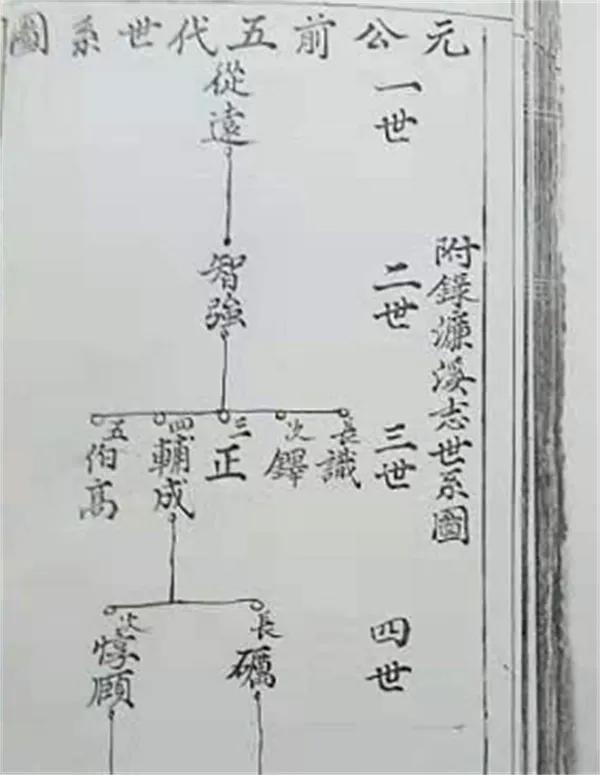 元公前五代世系圖
附錄濂溪志世系圖
一世
從遠
二世
智強
三世
長識
次鐸
三正
四輔成
五伯高
四世
長礪
次惇頤